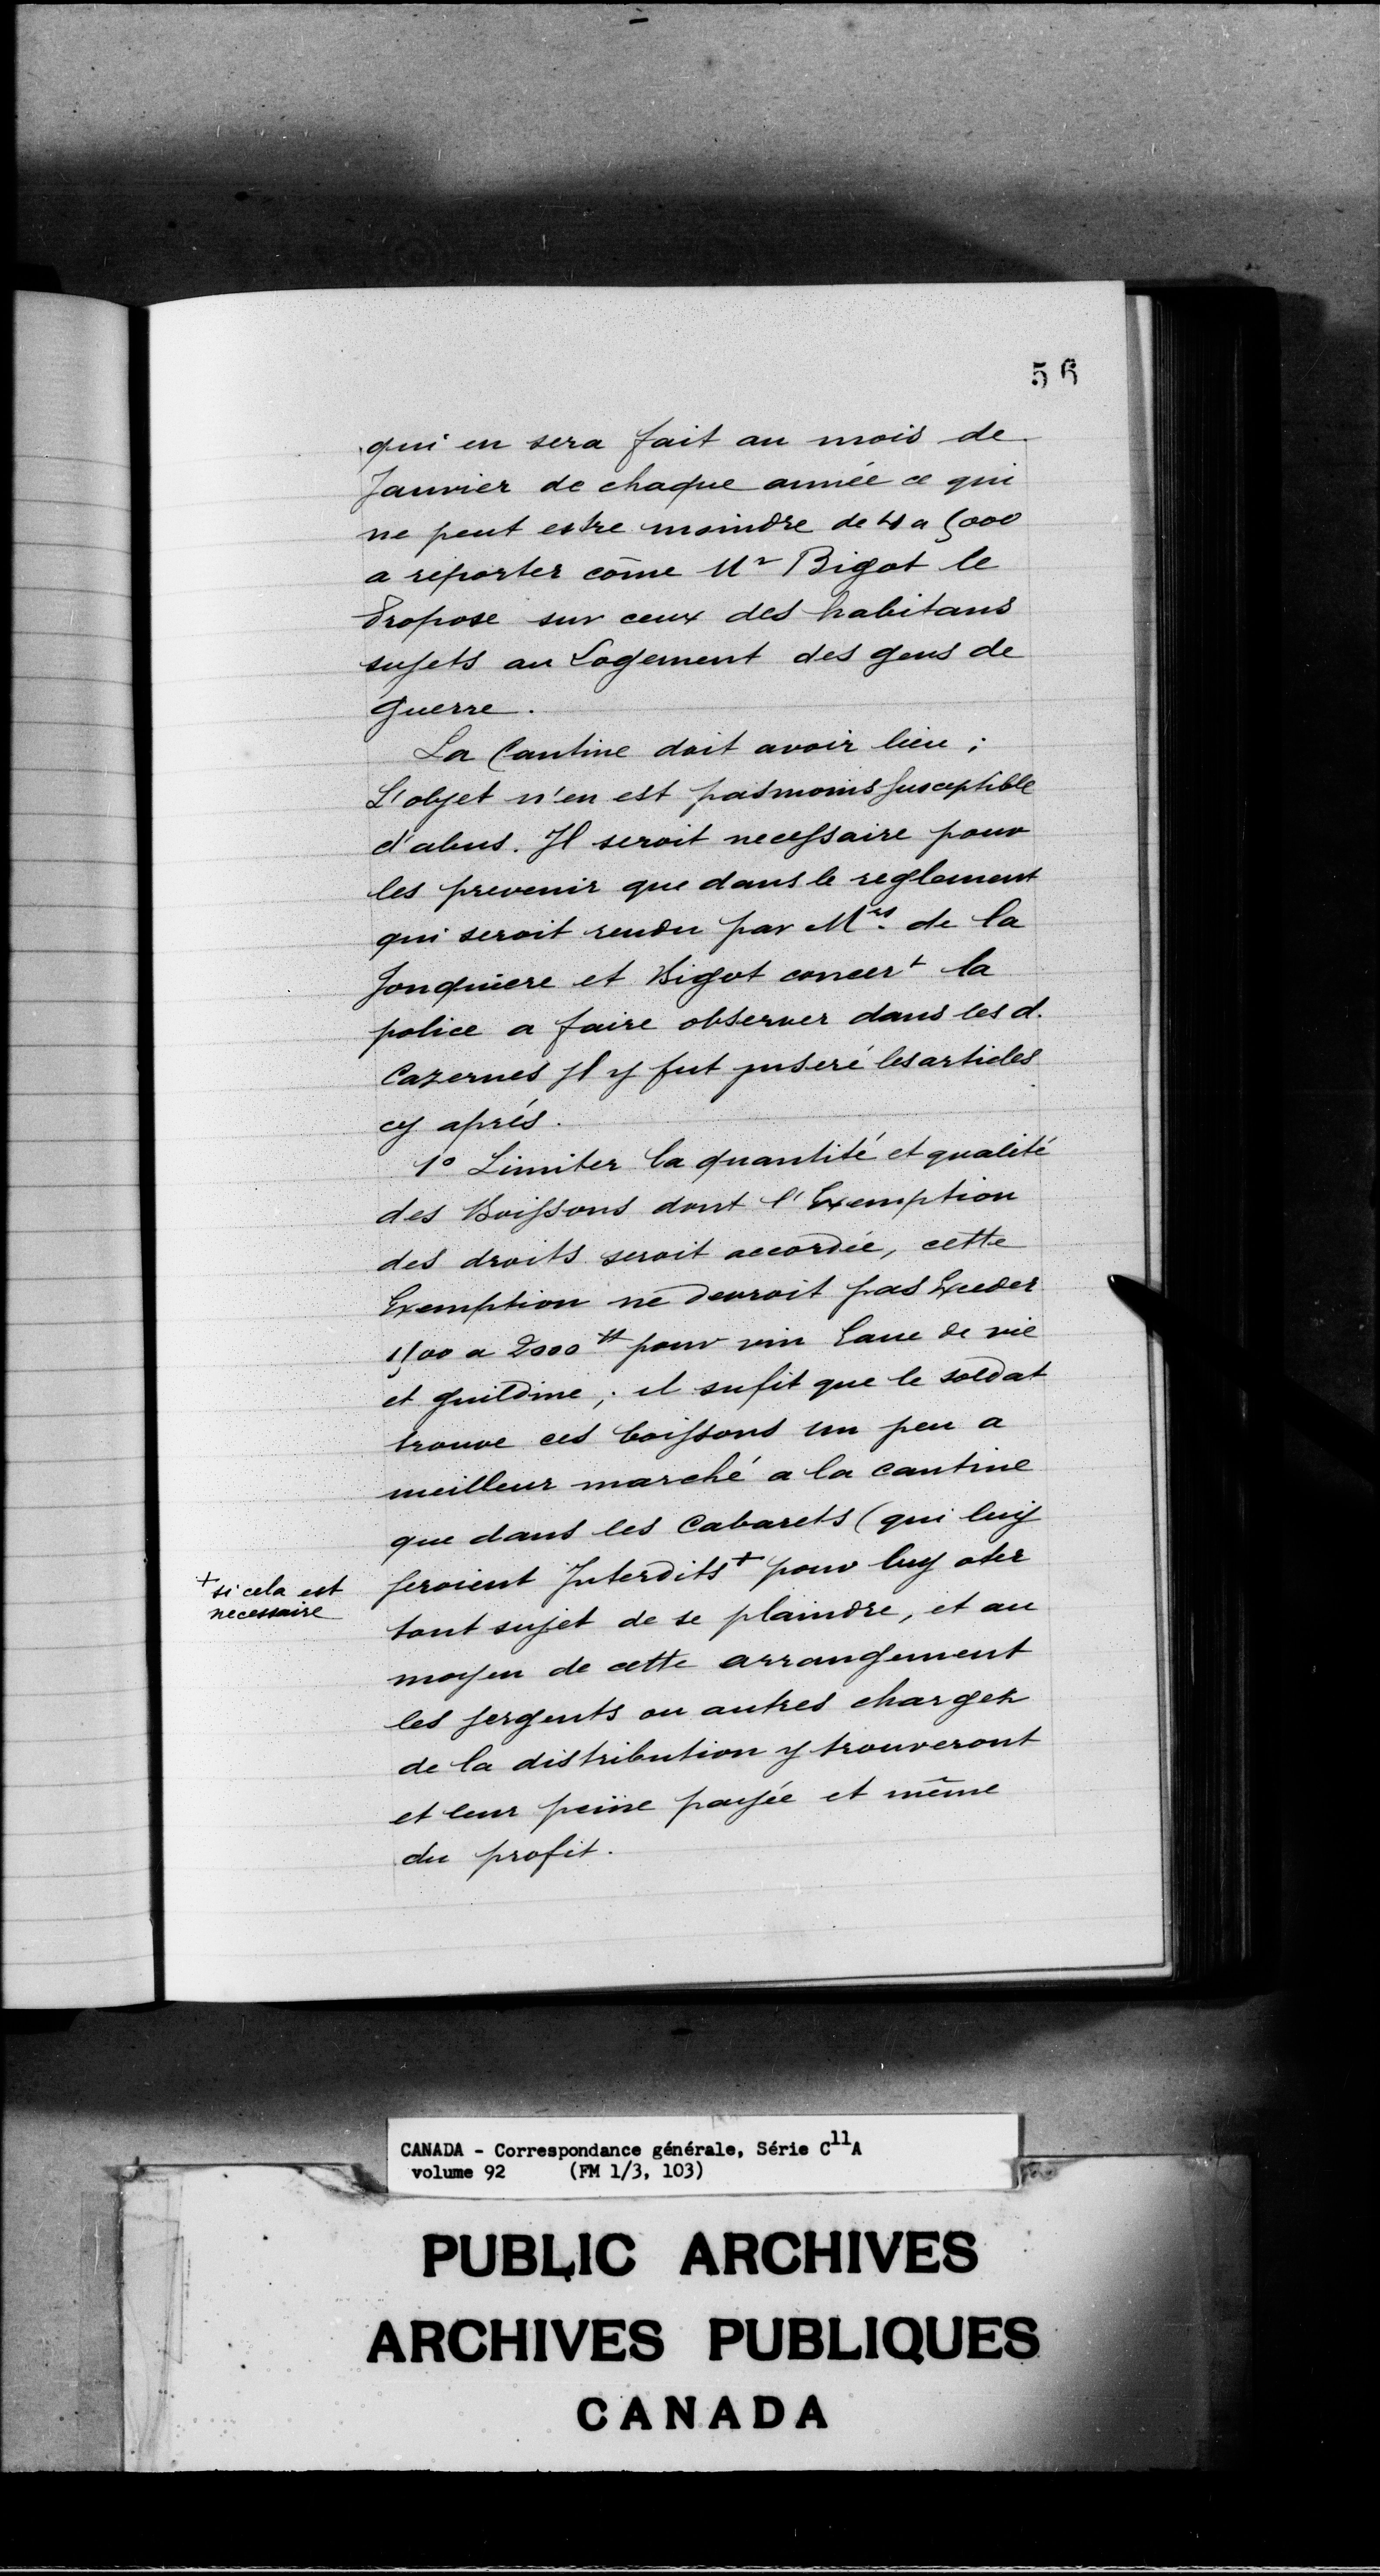 56
qui en sera fait au mois de
Janvier de chaque année ce qui
ne peut estre moindre de 4 a 5000
a reporter cōme Mr Bigot le
Propose sur ceux des habitans
sujets au Logement des gens de
guerre.
La Cantine doit avoir lieu ;
L'objet n'en est pas moins susceptible
d'abus. Il seroit necessaire pour
les prevenir que dans le reglement
qui seroit rendu par Mrs. de la
Jonquiere et Bigot concert la
police a faire observer dans les d.
Cazernes Il y fut inseré les articles
cy aprés.
1o Limiter la quantité et qualité
des Boissons dont l'Exemption
des droits seroit accordée, cette
Exemption ne devroit pas Exceder
1500 a 2000 ₶ pour vin Eaue de vie
et guildive ; il sufit que le soldat
trouve ces boissons un peu a
meilleur marché a la cantine
que dans les Cabarets (qui luy
seroient Interdits + pour luy oter
+ si cela est
necessaire
tout sujet de se plaindre, et au
moyen de cette arrangement
les sergents ou autres chargez
de la distribution y trouveront
et leur peine payée et même
du profit.
CANADA - Correspondance générale, Série C11A
volume 92 (FM 1/3, 103)
PUBLIC ARCHIVES
ARCHIVES PUBLIQUES
CANADA